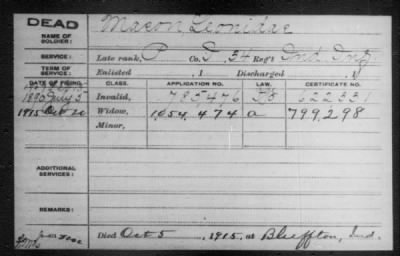 DEAD
NAME OF SOLDIER: Macon Leonidas
SERVICE: Late rank, P Co. 34 Reg't Ind. Inf.
TERM OF SERVICE: Enlisted , 1 Discharged , 1
DATE OF FILING. CLASS. APPLICATION NO. LAW. CERTIFICATE NO.
1890 July 5 Invalid, 785,476 622331
1915 Oct 20 Widow, 1,054,474 a 799,298
Minor,
ADDITIONAL SERVICES:
REMARKS:
Died Oct 5, 1915, at Bluffton, Ind.